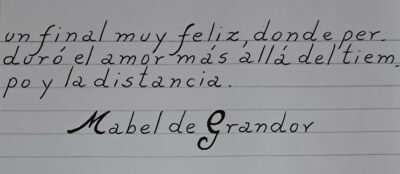 un final muy feliz, donde per-
duró el amor más allá del tiem-
po y la distancia.
Mabel de Grandor